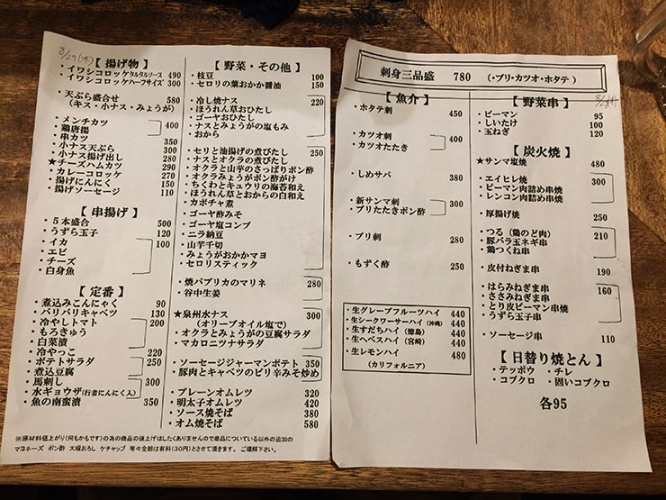 8/27(木)
【 揚げ物 】
・イワシコロッケタルタルソース 490
・イワシコロッケハーフサイズ 300
・天ぷら盛合せ 580
（キス・小ナス・みょうが）
・メンチカツ
・鶏唐揚 400
・串カツ
・小ナス天ぷら 350
・小ナス揚げ出し 300
★チーズハムカツ 280
・カレーコロッケ 270
・揚げにんにく 150
・揚げソーセージ 110
【 串揚げ 】
・５本盛合 500
・うずら玉子 120
・イカ
・エビ 100
・チーズ
・白身魚
【 定番 】
・煮込みこんにゃく 90
・バリバリキャベツ 130
・冷やしトマト 200
・もろきゅう
・白菜漬
・冷やっこ 220
・ポテトサラダ 250
・煮込豆腐
・馬刺し 300
・水ギョウザ(行者にんにく入)
・魚の南蛮漬 350
【 野菜・その他 】
・枝豆 100
・セロリの葉おかか醤油 150
・冷し焼ナス 220
・ほうれん草おひたし
・ゴーヤおひたし
・ナスとみょうがの塩もみ
・おから
・セリと油揚げの煮びたし 250
・ナスとオクラの煮びたし
・オクラと山芋のさっぱりポン酢
・オクラみょうがポン酢がけ
・ちくわとキュウリの海苔和え
・ほうれん草とおからの白和え
・カボチャ煮
・ゴーヤ酢みそ
・ゴーヤ塩コンブ
・ニラ納豆
・山芋千切
・みょうがおかかマヨ
・セロリスティック
・焼パプリカのマリネ 280
・谷中生姜
★泉州水ナス 300
（オリーブオイル塩で）
・オクラとみょうがの豆腐サラダ
・マカロニツナサラダ
・ソーセージジャーマンポテト 350
・豚肉とキャベツのピリ辛みそ炒め
・プレーンオムレツ 320
・明太子オムレツ 420
・ソース焼そば 380
・オム焼そば 580
※原材料値上がり(何もかもです)の為の商品の値上げはしたくありませんので商品についている以外の追加の
マヨネーズ ポン酢 大根おろし ケチャップ 等々全部は有料(30円)とさせて頂きます。ご理解下さい。
刺身三品盛 780 （・ブリ・カツオ・ホタテ ）
【 魚介 】
・ホタテ刺 450
・カツオ刺 400
・カツオたたき
・しめサバ 380
・新サンマ刺 300
・ブリたたきポン酢
・ブリ刺 280
・もずく酢 250
・生グレープフルーツハイ 440
・生シークワーサーハイ（沖縄） 440
・生すだちハイ（徳島） 440
・生ヘベスハイ（宮崎） 440
・生レモンハイ 480
（カリフォルニア）
【 野菜串 】
・ピーマン 95
・しいたけ 100
・玉ねぎ 120
【 炭火焼 】
★サンマ塩焼 480
・エイヒレ焼 300
・ピーマン肉詰め串焼
・レンコン肉詰め串焼
・厚揚げ焼 250
・つる（鶏のど肉） 210
・豚バラ玉ネギ串
・鶏つくね串
・皮付ねぎま串 190
・はらみねぎま串 160
・ささみねぎま串
・とり皮ピーマン串焼
・うずら玉子串
・ソーセージ串 110
【日替り焼とん】
・テッポウ ・チレ
・コブクロ ・固いコブクロ
各95